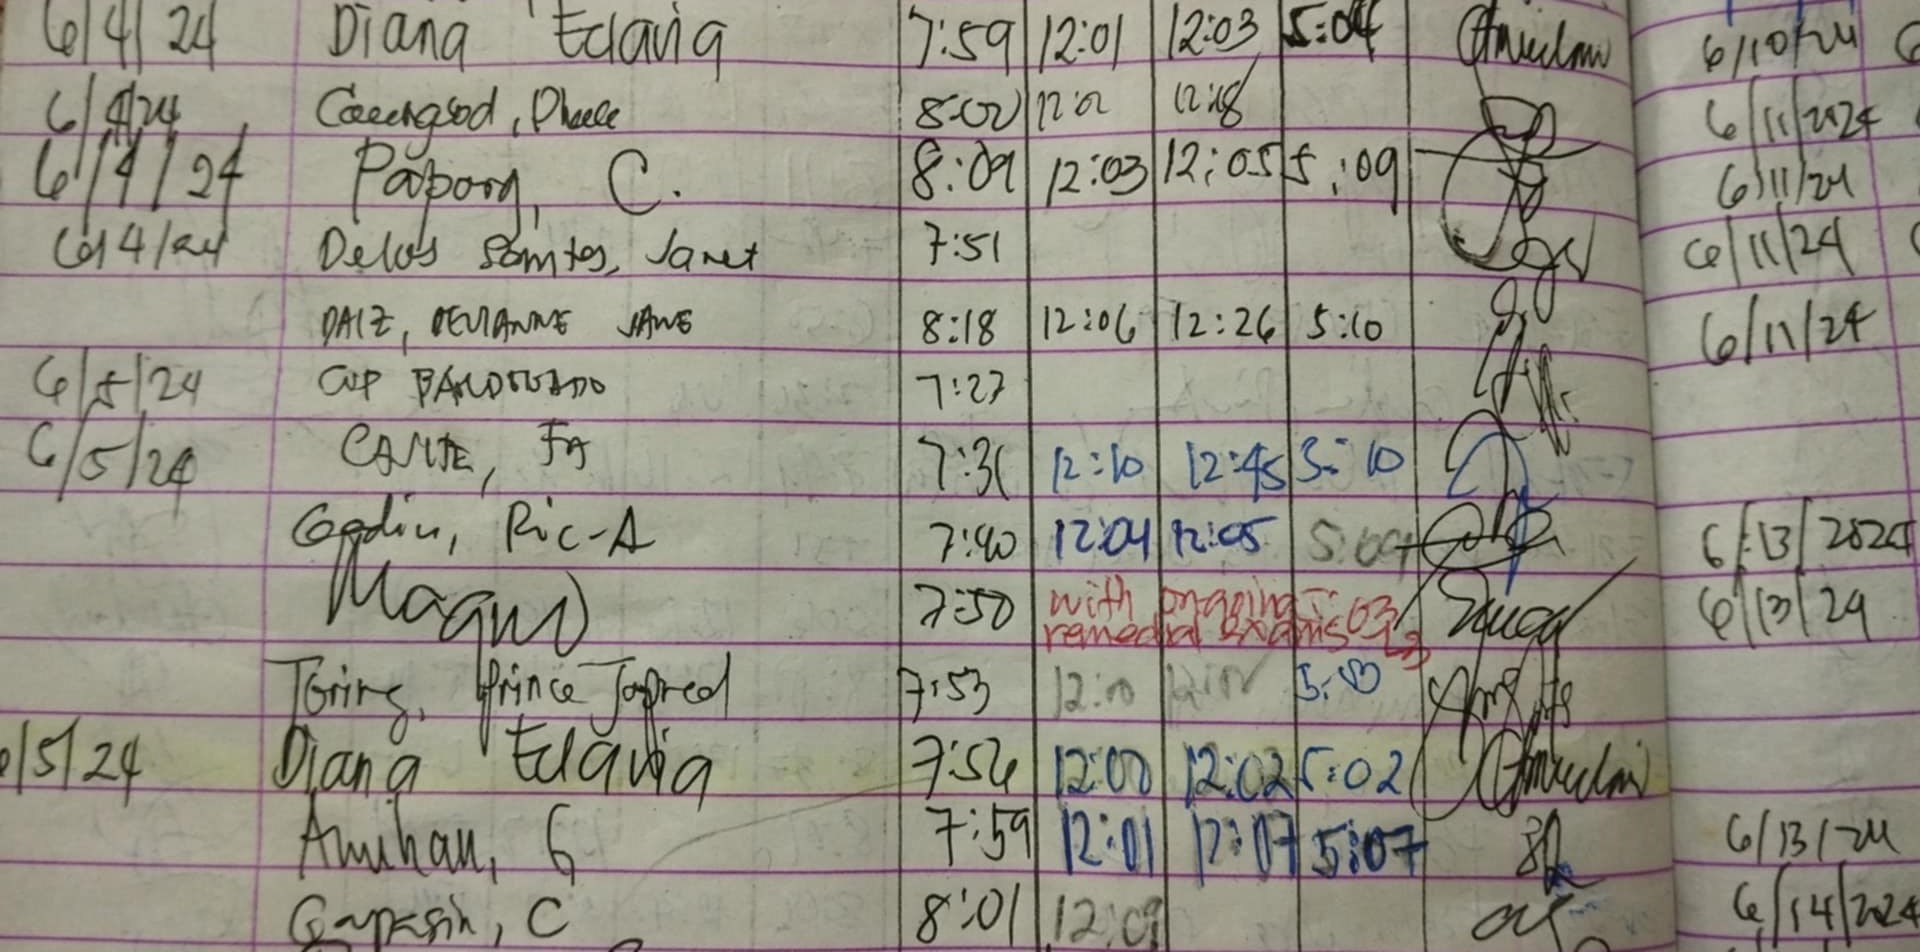 6/4/24 Diana Eclavia 7:59 12:01 12:03 5:04 6/10/24
6/4/24 8:00 12:02 12:18 6/11/2024
6/4/24 Paborg, C. 8:09 12:03 12:05 5:09 6/11/24
6/4/24 Delos Santos, Janet 7:51 6/11/24
DAIZ, JANE 8:18 12:06 12:26 5:10 6/11/24
6/5/24 7:27
6/5/24 CANTE, FA 7:31 12:10 12:45 5:10
Godin, Ric-A 7:40 12:04 12:05 5:09 6/13/2024
7:50 with ongoing 5:03 6/13/24
remedial exams
Toring, Prince Japred 7:53 5:10
6/5/24 Diana Eclavia 7:56 12:00 12:02 5:02
Amihan, G 7:59 12:01 12:07 5:07 6/13/24
Gapasin, C 8:01 12:09 6/14/2024